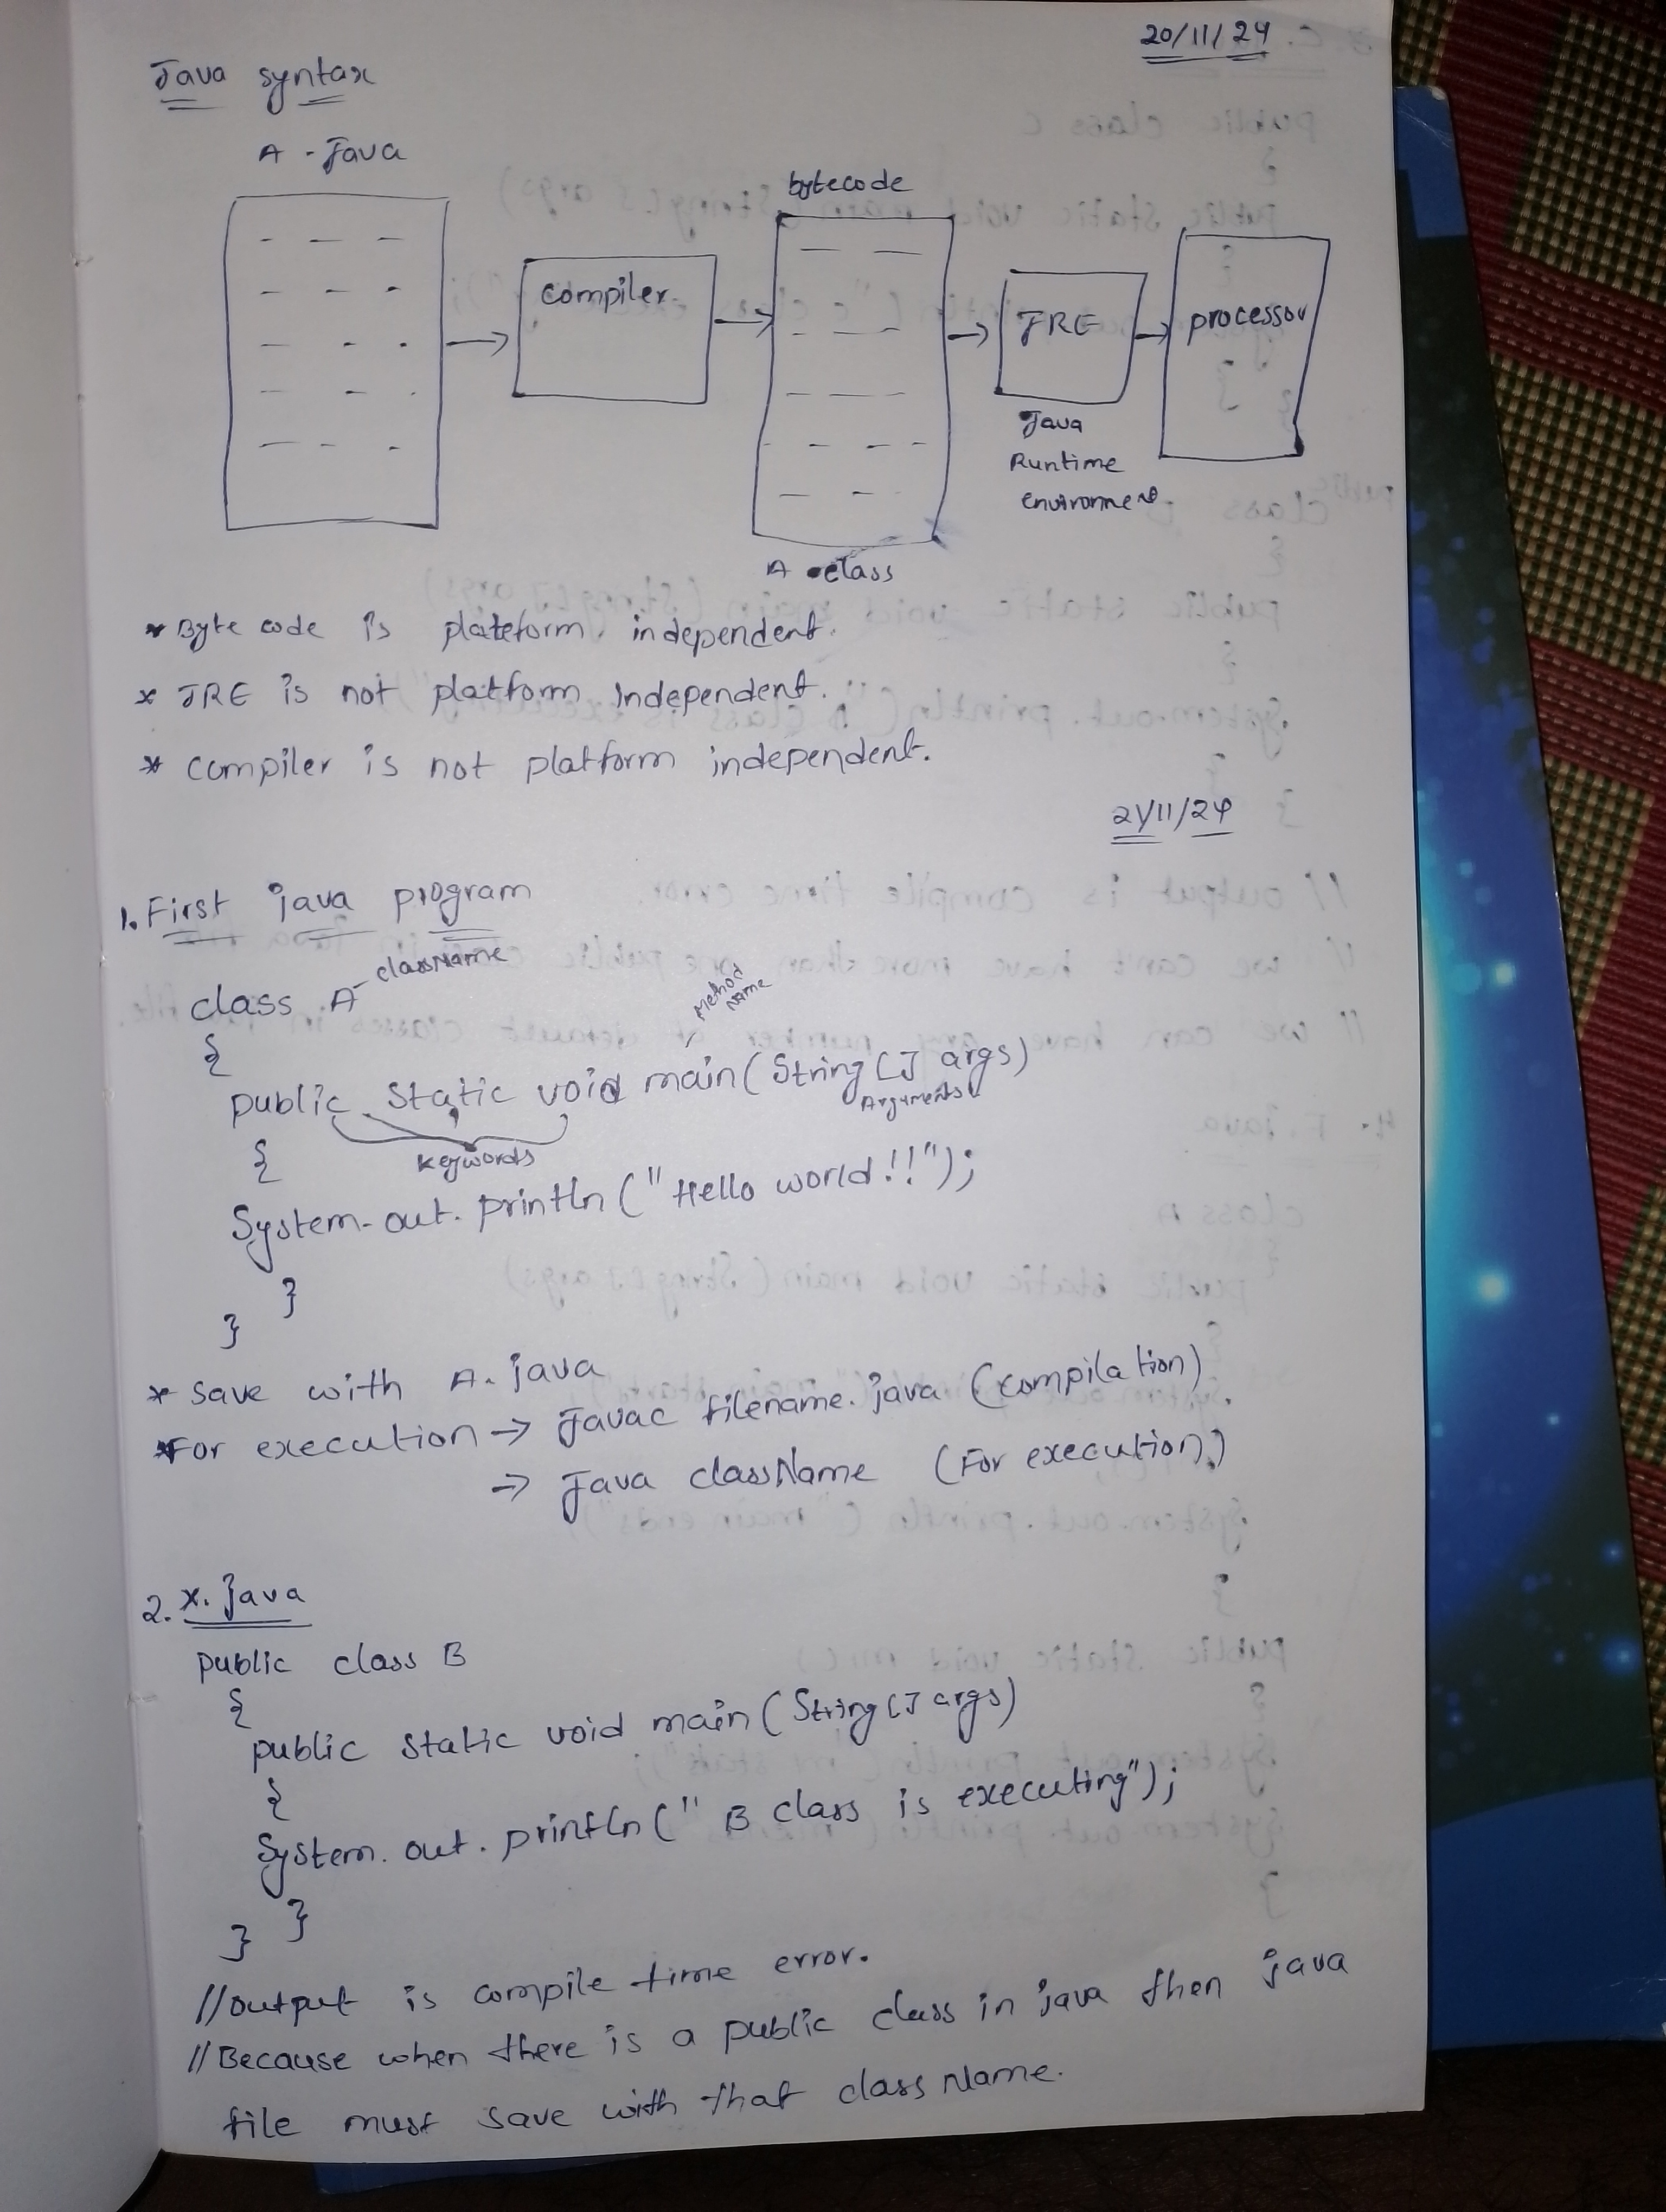 20/11/24
Java syntax
A - Java
bytecode
compiler
JRE
processor
Java
Runtime
environment
A class
* Byte code is plateform independent.
* JRE is not platform Independent.
* compiler is not platform independent.
21/11/24
1. First java program
class A - className
Method
Name
{
public static void main(String[] args)
Arguments
{
keywords
System.out.println("Hello world!!");
}
}
* Save with A.java
*For execution → Javac filename.java (compilation)
→ Java className (For execution)
2. X.java
public class B
{
public static void main(String[] args)
{
System.out.println(" B class is executing");
}
}
//Output is compile time error.
//Because when there is a public class in java then java
file must save with that class Name.